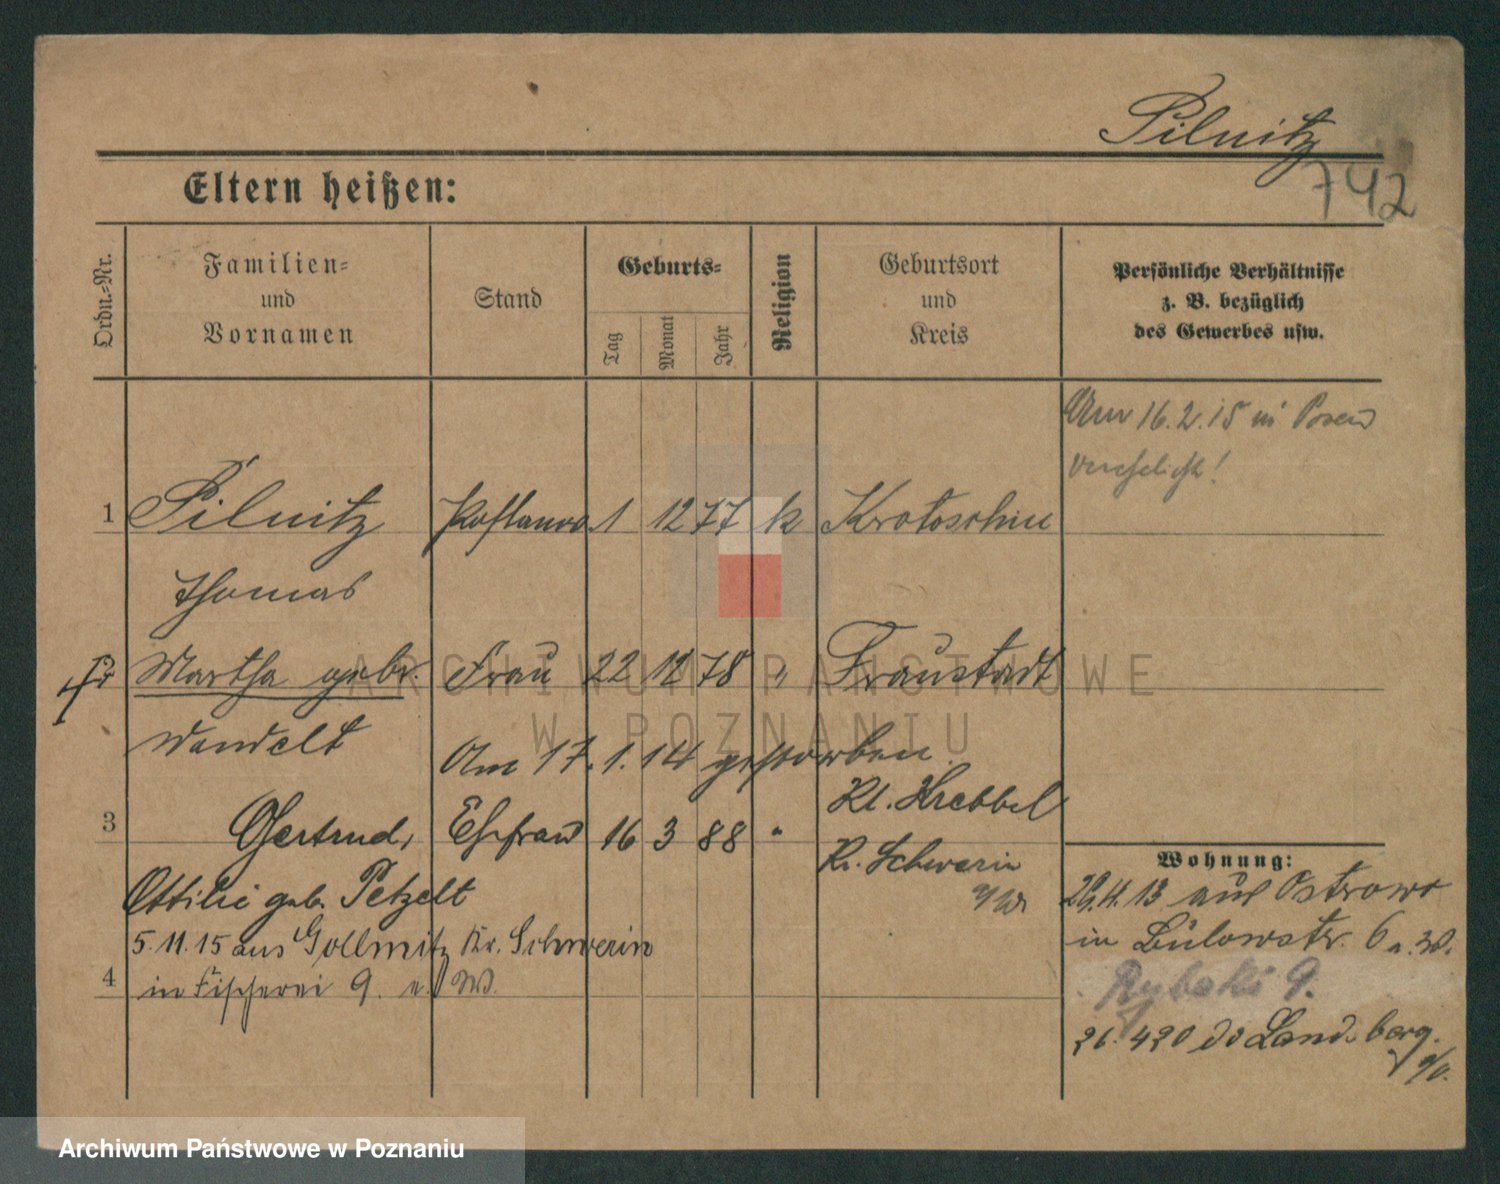 Pilnitz
742
Eltern heißen:
Ordn.-Nr.
Familien-
und
Vornamen
Stand
Geburts-
Tag
Monat
Jahr
Religion
Geburtsort
und
Kreis
Persönliche Verhältnisse
z. B. bezüglich
des Gewerbes usw.
Am 16.2.15 in Posen
verehelicht!
1 Pilnitz 1 12 77 k Krotoschin
Thomas
2 Martha gebr. Frau 22 12 78 " Fraustadt
Wandelt
Am 17.1.14 gestorben
Kl. Krebbel
3 Gertrud, Ehefrau 16 3 88 "
Kr. Schwerin
a/W
Ottilie geb. Petzelt
5.11.15 aus Gollmitz Kr. Schwerin
4 in Fischerei 9. a. W.
Wohnung:
29.4.13 aus Ostrowo
in Bülowstr. 6 a. W.
Rybaki 9.
26.4 20 Landsberg
ARCHIWUM PAŃSTWOWE
W POZNANIU
Archiwum Państwowe w Poznaniu